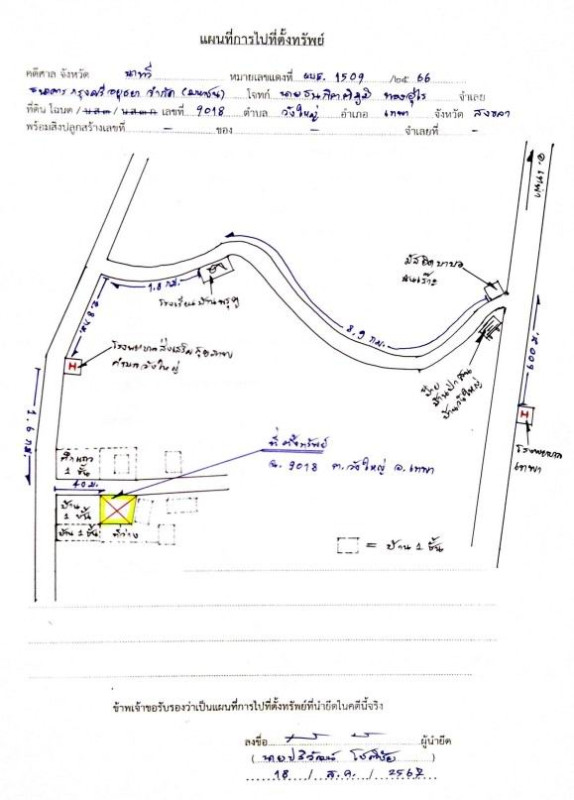 แผนที่การไปที่ตั้งทรัพย์
คดีศาล จังหวัด นาทวี หมายเลขแดงที่ ผบE. 1509 /๒๕ 66
ธนาคาร กรุงศรีอยุธยา จำกัด (มหาชน) โจทก์ จำเลย
ที่ดิน โฉนด / น.ส.๓ / น.ส.๓ ก เลขที่ 9018 ตำบล วังใหญ่ อำเภอ เทพา จังหวัด สงขลา
พร้อมสิ่งปลูกสร้างเลขที่ - ของ - จำเลยที่ -
อ. เทพา
มัสยิดบาบอ
1.8 กม.
โรงเรียนบ้านพรุหฺ
3.9 กม.
600 ม.
ป้าย
บ้านวังใหญ่
โรงพยาบาลส่งเสริมสุขภาพ
ตำบลวังใหญ่
H
H
โรงพยาบาล
เทพา
1.6 กม.
ที่ตั้งทรัพย์
ฉ. 9018 ต.วังใหญ่ อ.เทพา
ตึกแถว
1 ชั้น
40 ม.
บ้าน
1 ชั้น
บ้าน 1 ชั้น
ที่ว่าง
= บ้าน 1 ชั้น
ข้าพเจ้าขอรับรองว่าเป็นแผนที่การไปที่ตั้งทรัพย์ที่นำยึดในคดีนี้จริง
ลงชื่อ ผู้นำยึด
18 / ส.ค. / 2567